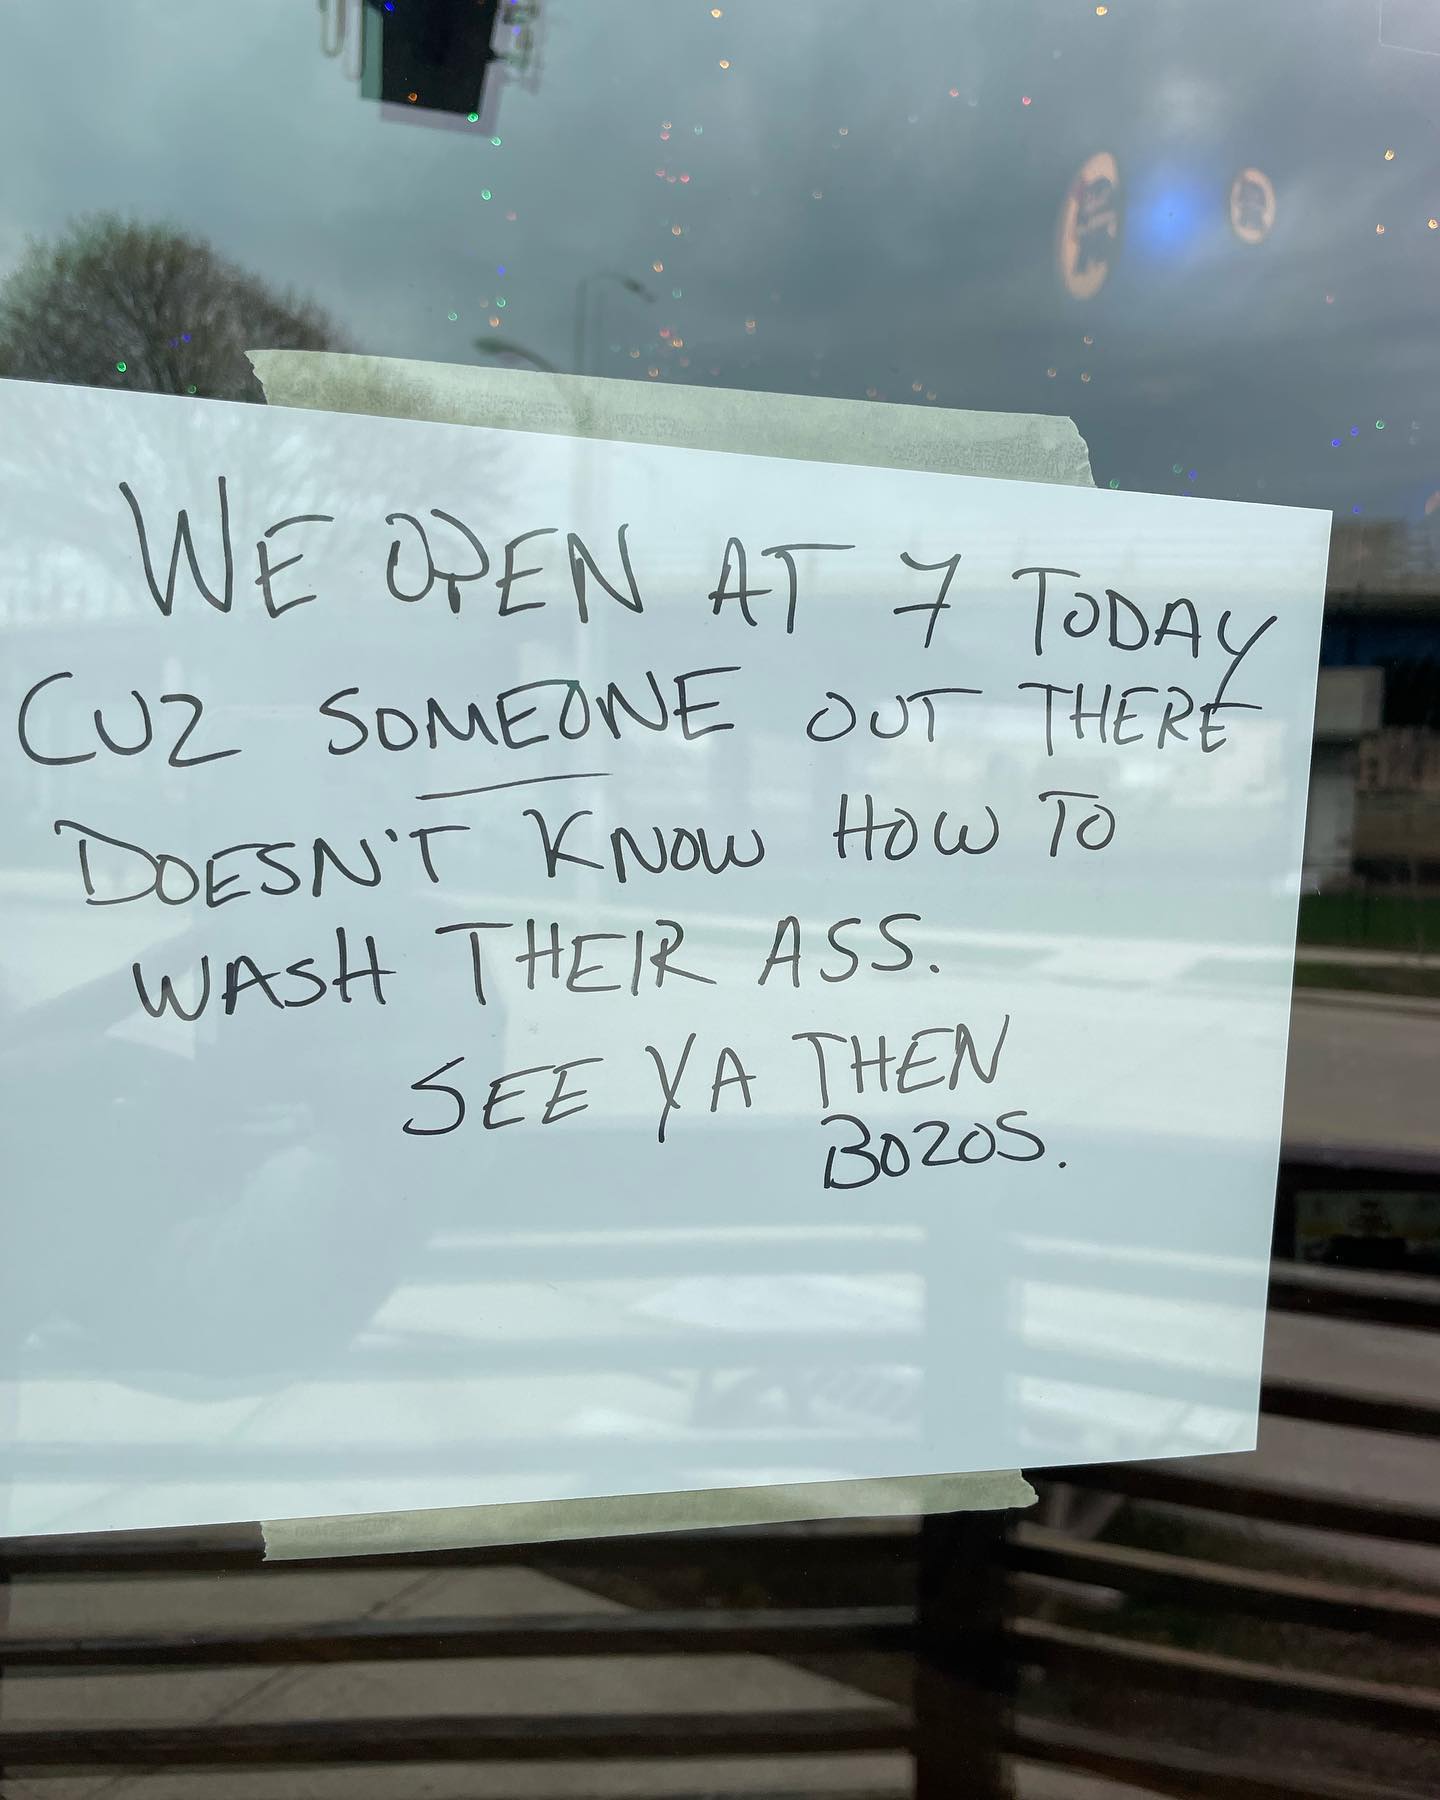 WE OPEN AT 7 TODAY
CUZ SOMEONE OUT THERE
DOESN'T KNOW HOW TO
WASH THEIR ASS.
SEE YA THEN
BOZOS.